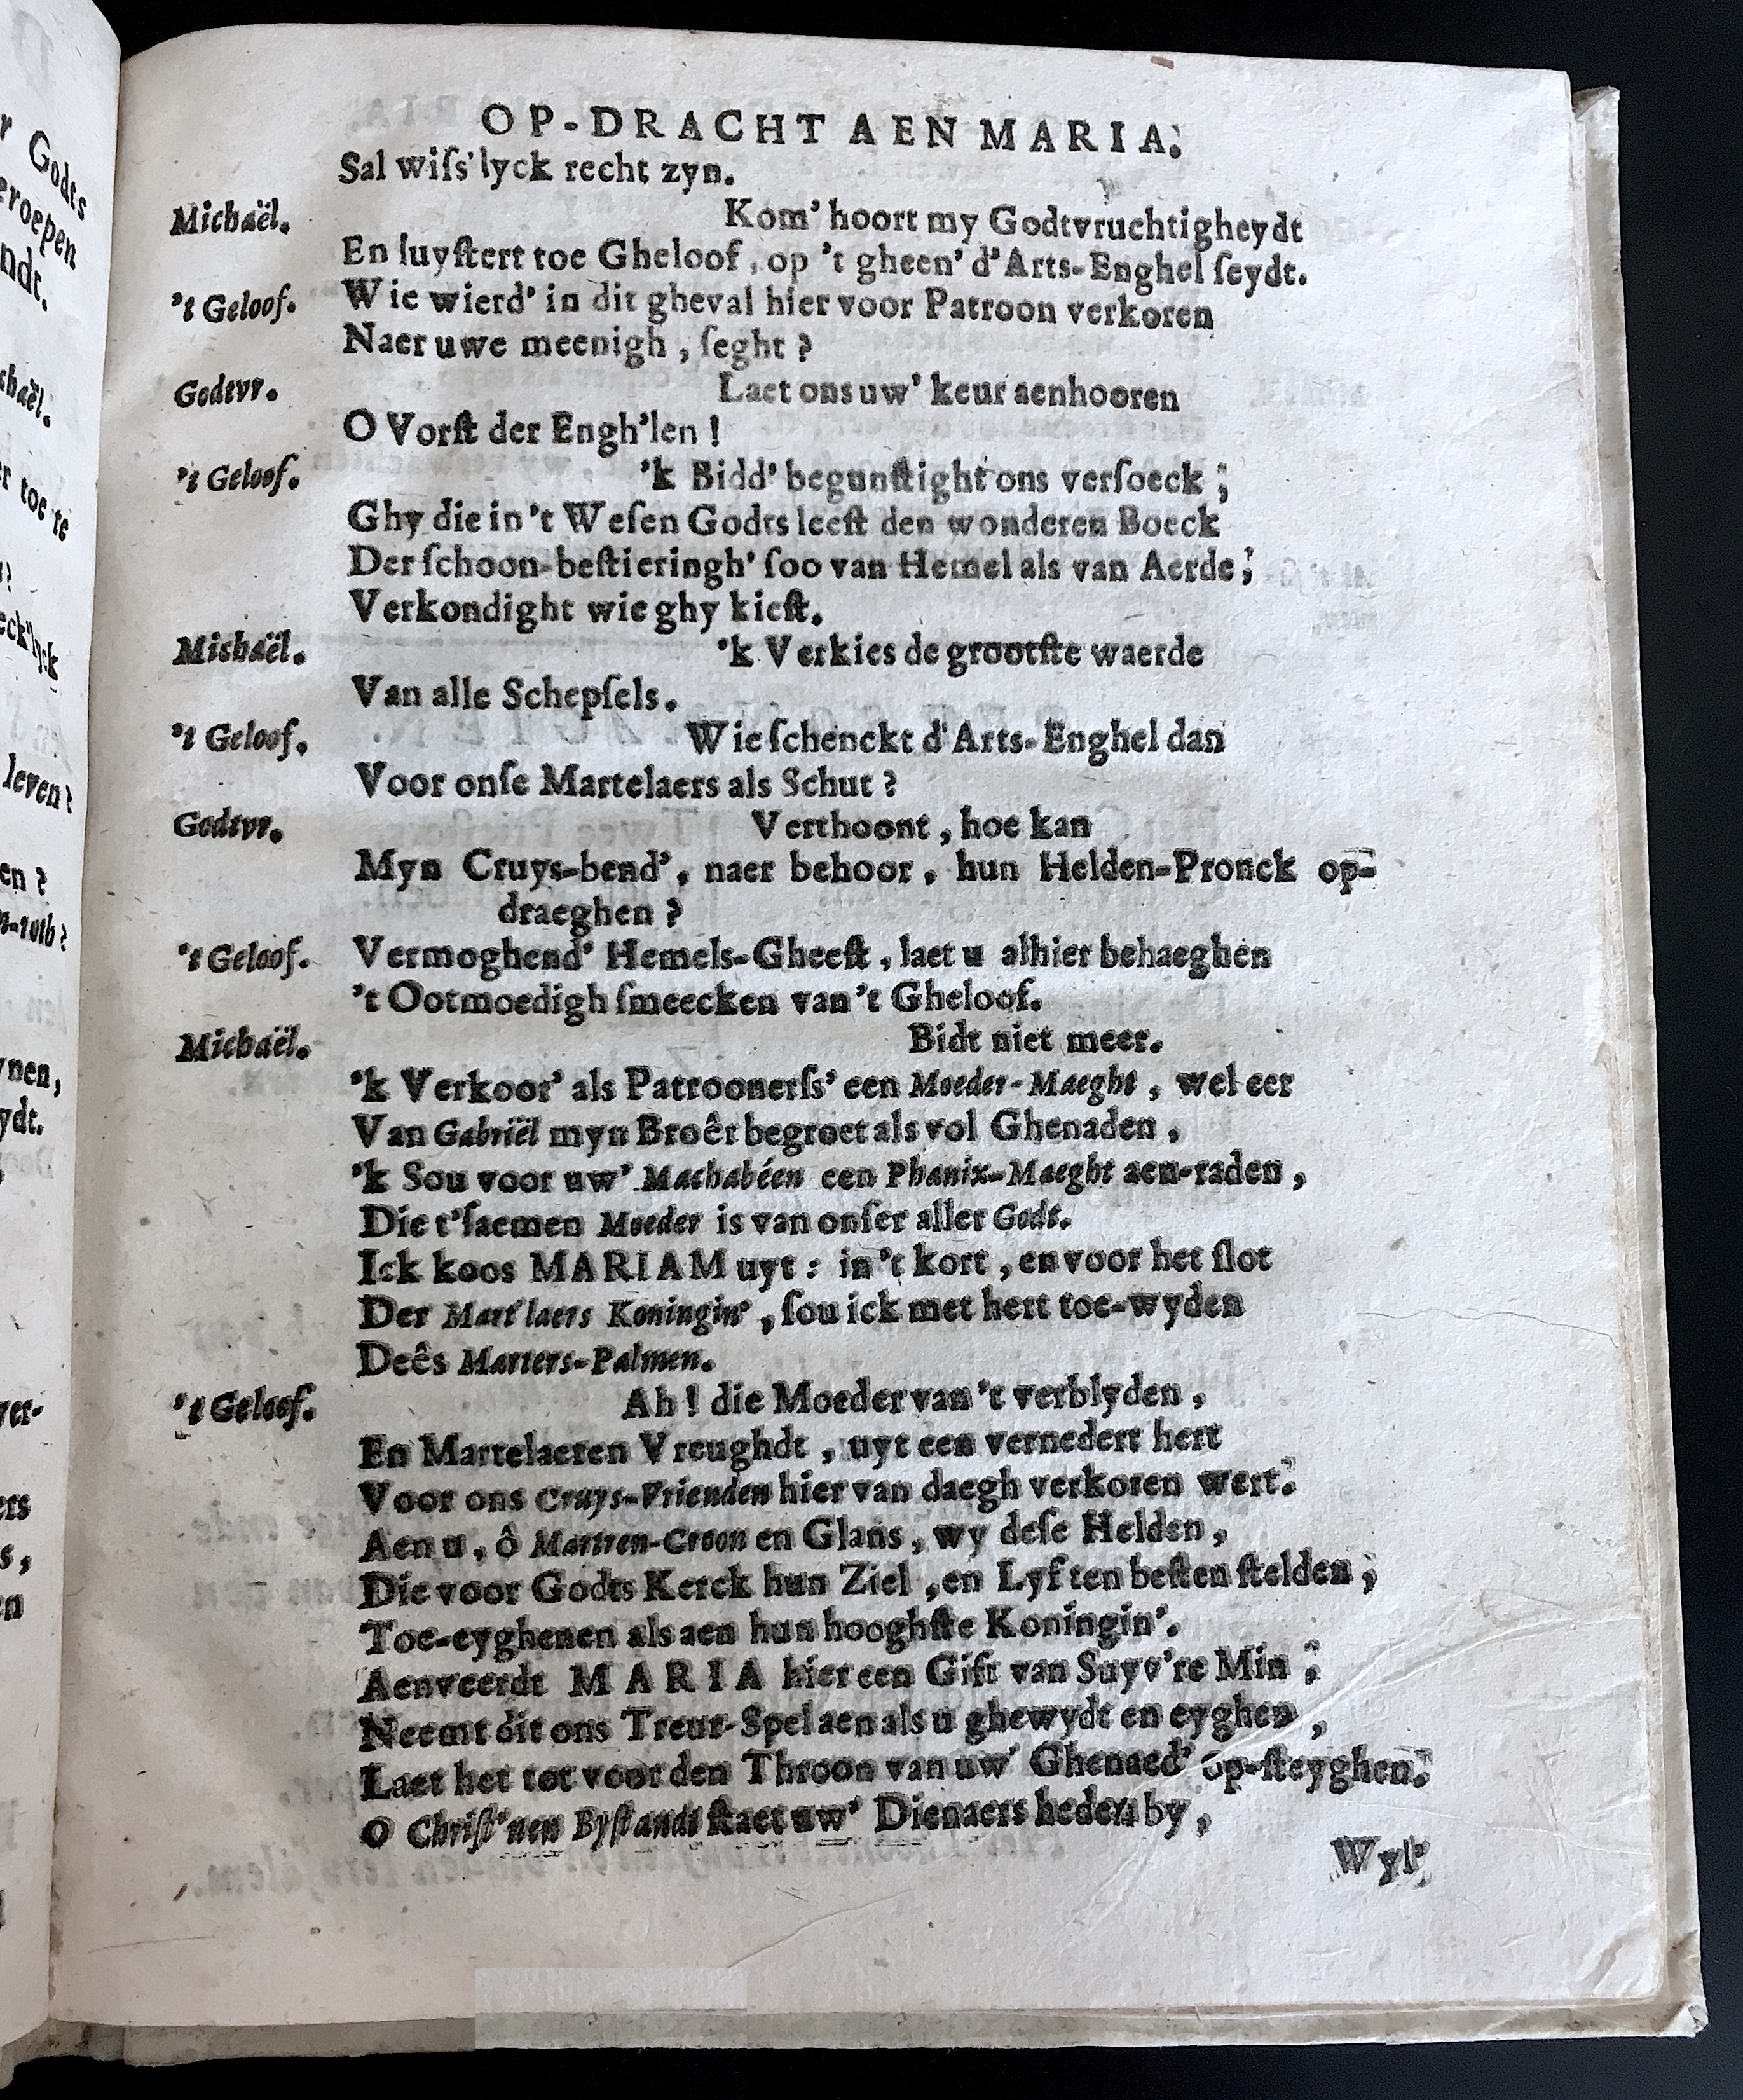 OP-DRACHT AEN MARIA.
Sal wiſs'lyck recht zyn.
Michaël. Kom' hoort my Godtvruchtigheydt
En luyſtert toe Gheloof, op 't gheen' d'Arts-Enghel ſeydt.
't Geloof. Wie wierd' in dit gheval hier voor Patroon verkoren
Naer uwe meenigh, ſeght?
Godtvr. Laet ons uw' keur aenhooren
O Vorſt der Engh'len!
't Geloof. 'k Bidd' begunſtight ons verſoeck;
Ghy die in 't Weſen Godts leeſt den wonderen Boeck
Der ſchoon-beſtieringh' ſoo van Hemel als van Aerde;
Verkondight wie ghy kieſt.
Michaël. 'k Verkies de grootſte waerde
Van alle Schepſels.
't Geloof. Wie ſchenckt d'Arts-Enghel dan
Voor onſe Martelaers als Schut?
Godtvr. Verthoont, hoe kan
Myn Cruys-bend', naer behoor, hun Helden-Pronck op-
draeghen?
't Geloof. Vermoghend' Hemels-Gheeſt, laet u alhier behaeghen
't Ootmoedigh ſmeecken van 't Gheloof.
Michaël. Bidt niet meer.
'k Verkoor' als Patroonerſs' een Moeder-Maeght, wel eer
Van Gabriël myn Broêr begroet als vol Ghenaden,
'k Sou voor uw' Machabéen een Phanix-Maeght aen-raden,
Die t'ſaemen Moeder is van onſer aller Godt.
Ick koos MARIAM uyt: in 't kort, en voor het ſlot
Der Mart'laers Koningin', ſou ick met hert toe-wyden
Deês Marters-Palmen.
't Geloof. Ah! die Moeder van 't verblyden,
En Martelaeren Vreughdt, uyt een vernedert hert
Voor ons Cruys-Vrienden hier van daegh verkoren wert.
Aen u, ô Martren-Croon en Glans, wy deſe Helden,
Die voor Godts Kerck hun Ziel, en Lyf ten beſten ſtelden;
Toe-eyghenen als aen hun hooghſte Koningin'.
Aenveerdt MARIA hier een Gift van Suyv're Min;
Neemt dit ons Treur-Spel aen als u ghewydt en eyghen,
Laet het tot voor den Throon van uw' Ghenaed' op-ſteyghen.
O Chriſt'nen Byſtandt ſtaet uw' Dienaers heden by,
Wyl'
r Godts
eroepen
ndt.
chaël.
r toe te
eck'lyck
leven?
en?
ynen,
ydt.
ver-
ers
s,
en